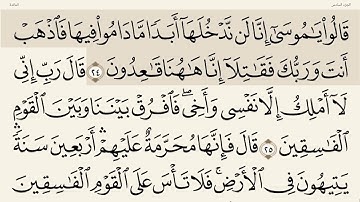 الجزء السادس
المائدة
قَالُوا۟ يَـٰمُوسَىٰٓ إِنَّا لَن نَّدْخُلَهَآ أَبَدًا مَّا دَامُوا۟ فِيهَا فَٱذْهَبْ
أَنتَ وَرَبُّكَ فَقَـٰتِلَآ إِنَّا هَـٰهُنَا قَـٰعِدُونَ ٢٤ قَالَ رَبِّ إِنِّى
لَآ أَمْلِكُ إِلَّا نَفْسِى وَأَخِى ۖ فَٱفْرُقْ بَيْنَنَا وَبَيْنَ ٱلْقَوْمِ
ٱلْفَـٰسِقِينَ ٢٥ قَالَ فَإِنَّهَا مُحَرَّمَةٌ عَلَيْهِمْ ۛ أَرْبَعِينَ سَنَةً ۛ
يَتِيهُونَ فِى ٱلْأَرْضِ ۚ فَلَا تَأْسَ عَلَى ٱلْقَوْمِ ٱلْفَـٰسِقِينَ